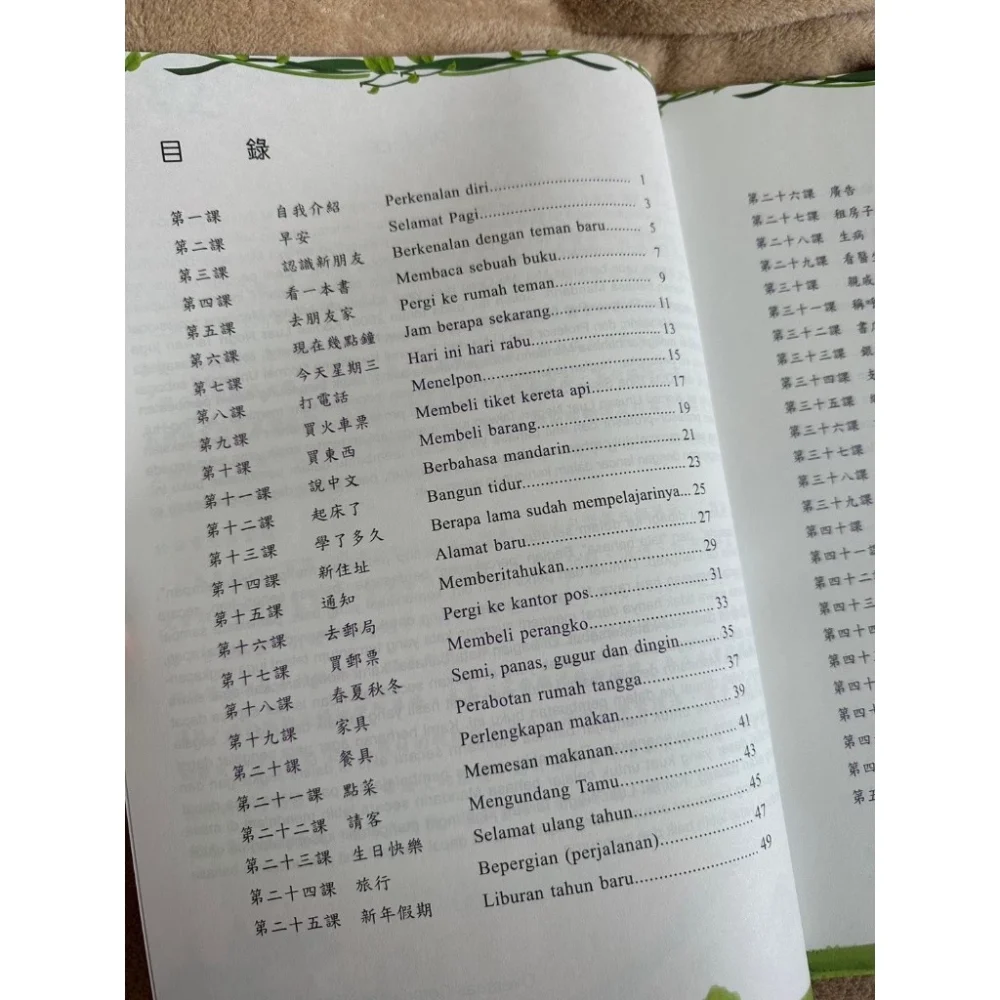 目 錄
第一課 自我介紹 Perkenalan diri 1
第二課 早安 Selamat Pagi 3
第三課 認識新朋友 Berkenalan dengan teman baru 5
第四課 看一本書 Membaca sebuah buku 7
第五課 去朋友家 Pergi ke rumah teman 9
第六課 現在幾點鐘 Jam berapa sekarang 11
第七課 今天星期三 Hari ini hari rabu 13
第八課 打電話 Menelpon 15
第九課 買火車票 Membeli tiket kereta api 17
第十課 買東西 Membeli barang 19
第十一課 說中文 Berbahasa mandarin 21
第十二課 起床了 Bangun tidur 23
第十三課 學了多久 Berapa lama sudah mempelajarinya 25
第十四課 新住址 Alamat baru 27
第十五課 通知 Memberitahukan 29
第十六課 去郵局 Pergi ke kantor pos 31
第十七課 買郵票 Membeli perangko 33
第十八課 春夏秋冬 Semi, panas, gugur dan dingin 35
第十九課 家具 Perabotan rumah tangga 37
第二十課 餐具 Perlengkapan makan 39
第二十一課 點菜 Memesan makanan 41
第二十二課 請客 Mengundang Tamu 43
第二十三課 生日快樂 Selamat ulang tahun 45
第二十四課 旅行 Bepergian (perjalanan) 47
第二十五課 新年假期 Liburan tahun baru 49
第二十六課 廣告
第二十七課 租房子
第二十八課 生病
第二十九課 看醫生
第三十課
第三十一課
第三十二課
第三十三課
第三十四課
第三十五課
第三十六課
第三十七課
第三十八課
第三十九課
第四十課
第四十一課
第四十二
第四十三
第四十四
第四十
第四十
第四十
第四
第四
第五